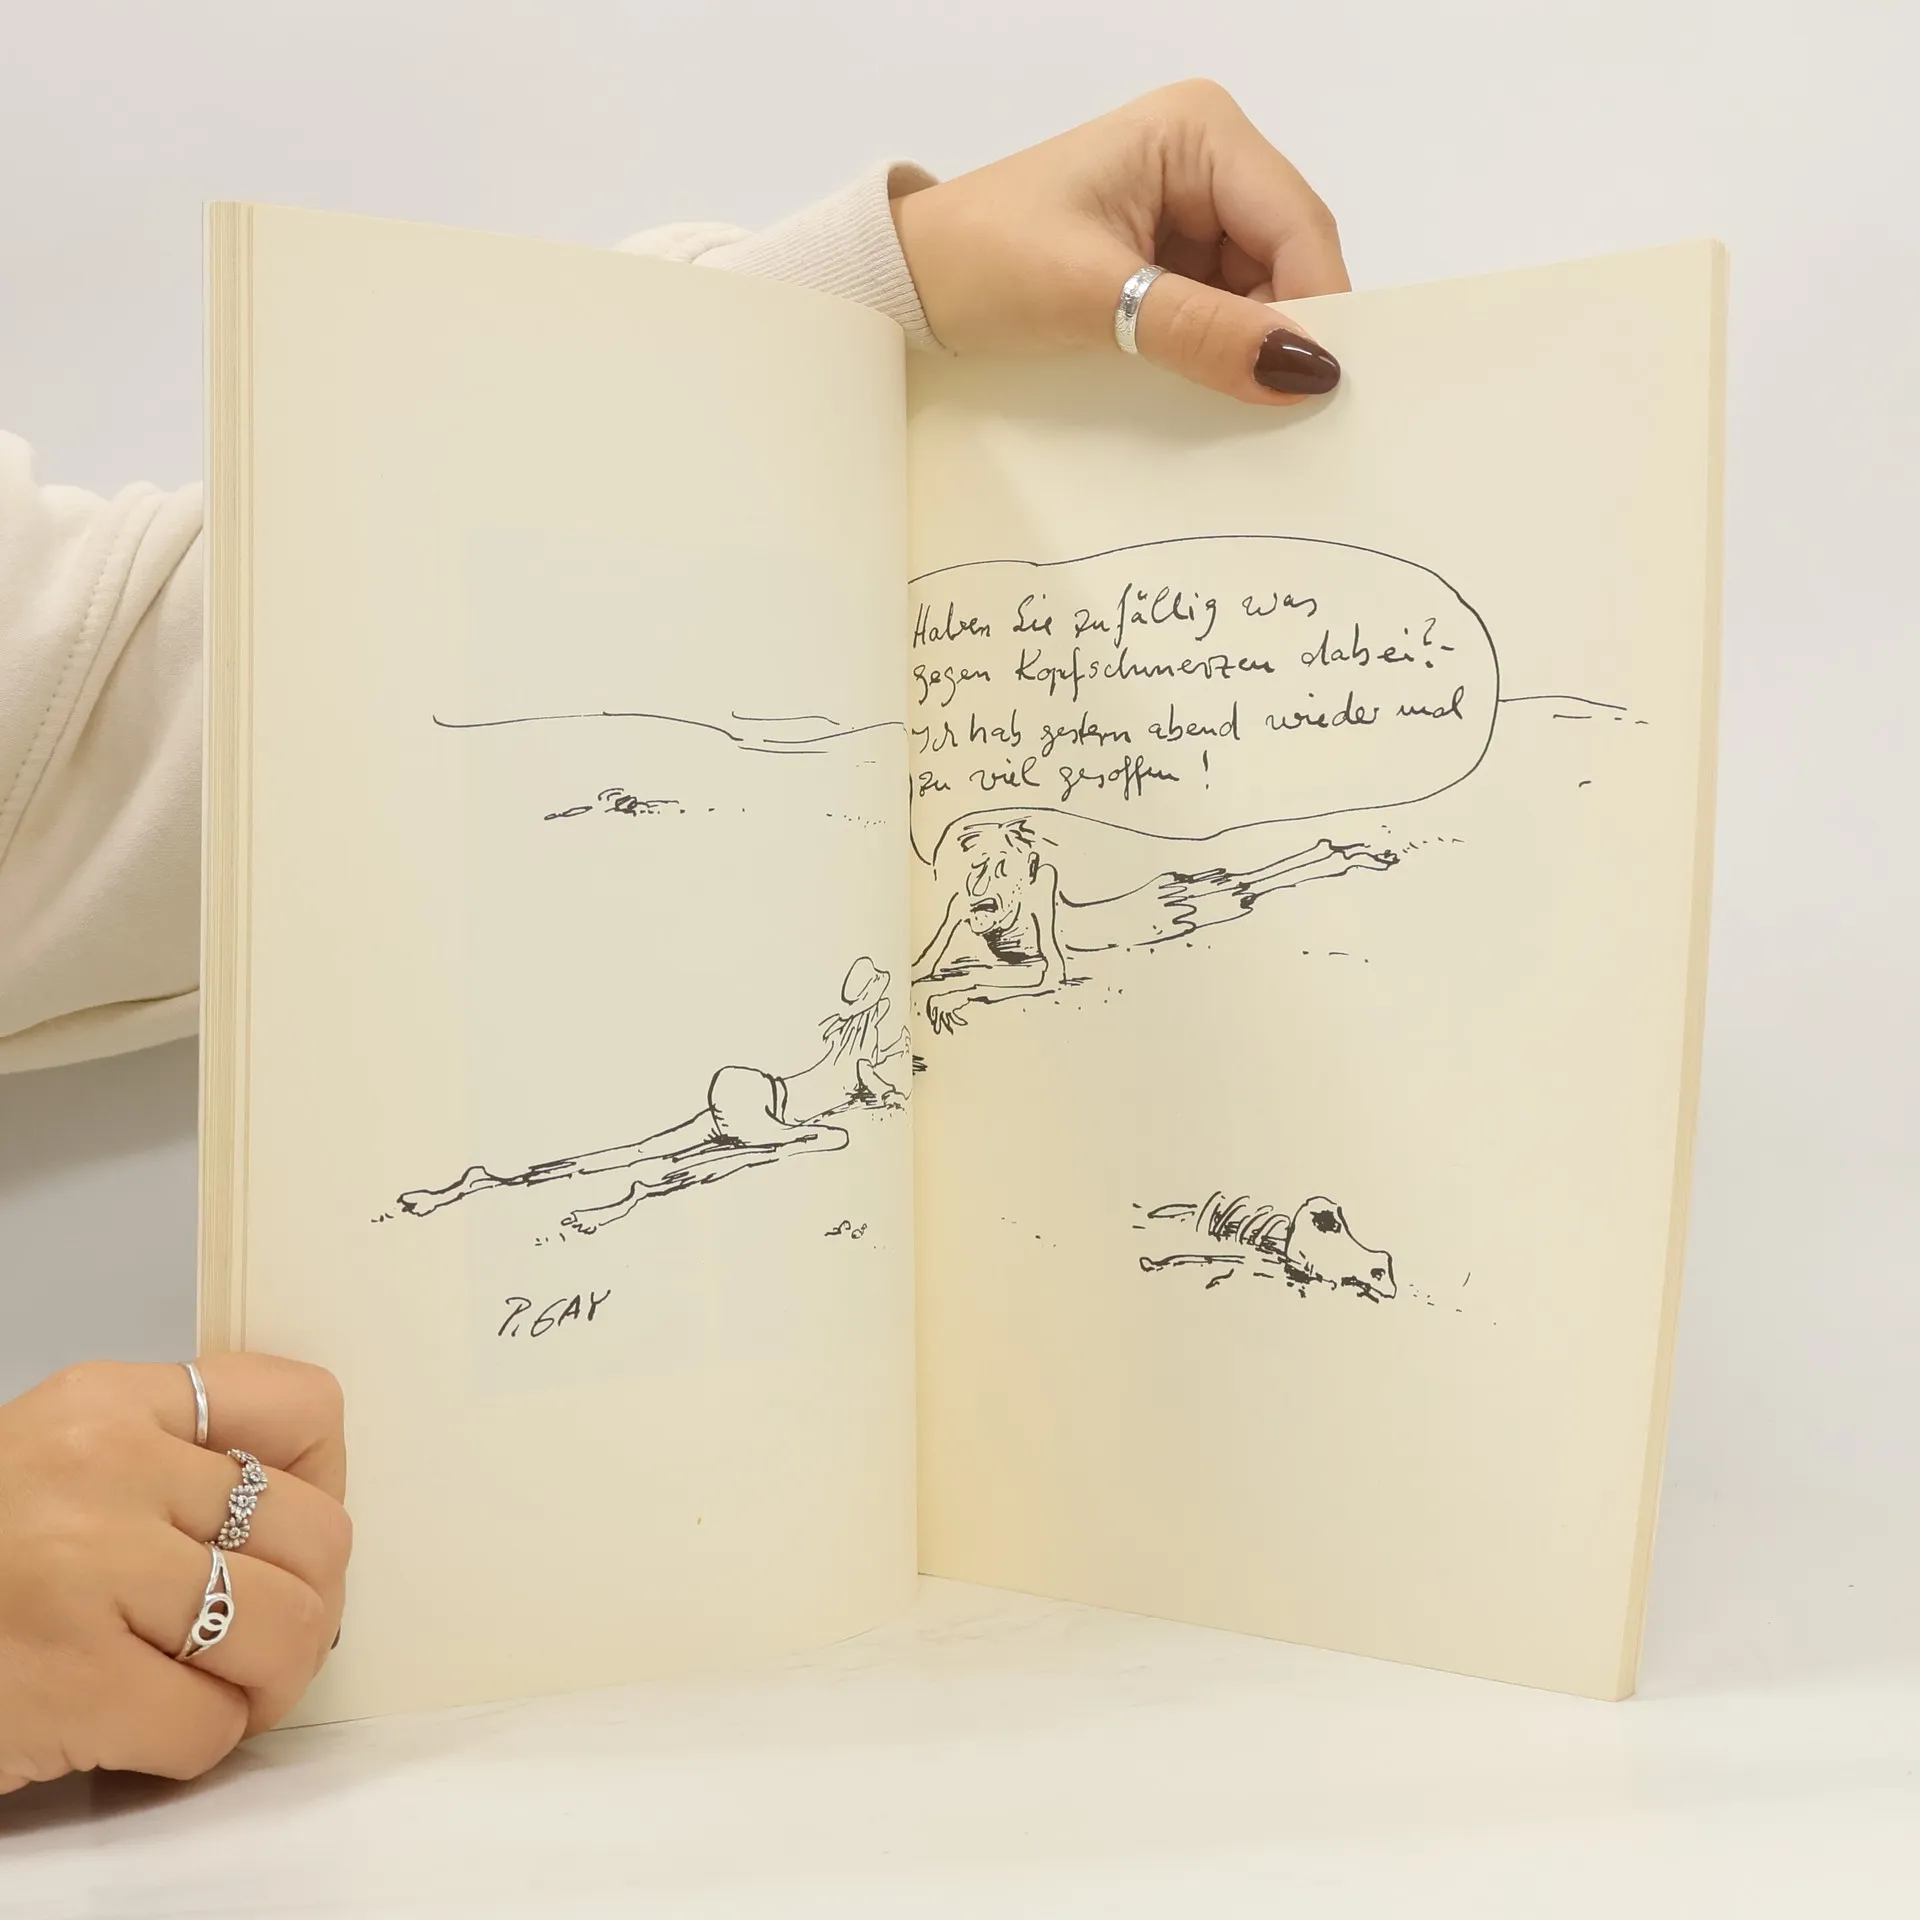 Haben Sie zufällig was
gegen Kopfschmerzen dabei?-
Ich hab gestern abend wieder mal
zu viel gesoffen!
P. GAY